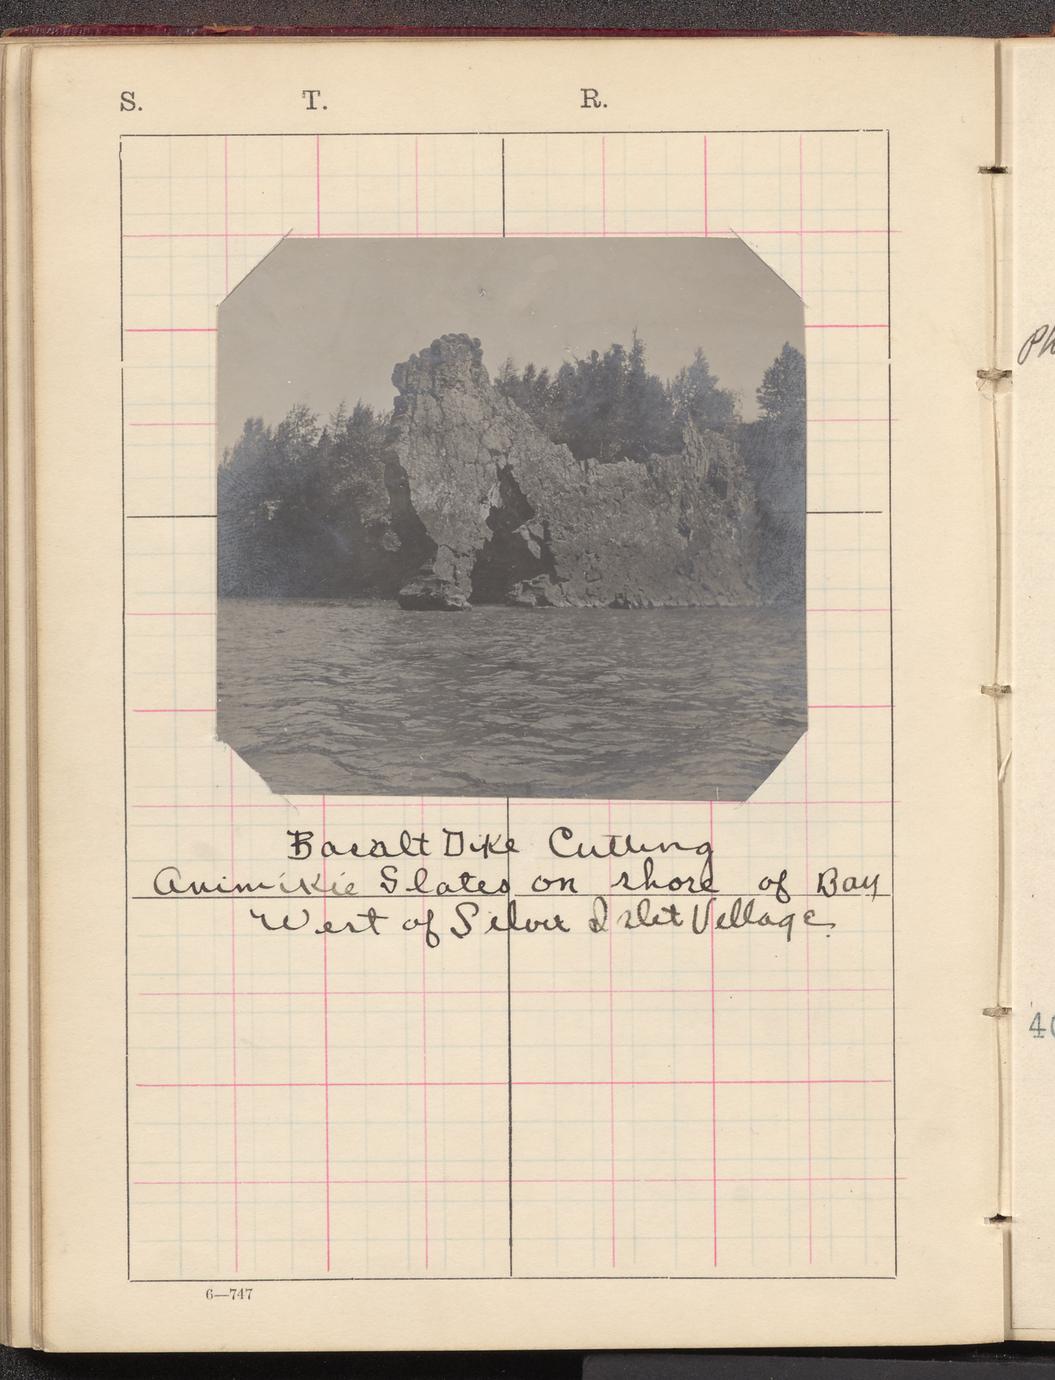 S. T. R.
Basalt Dike Cutting
Animikie Slates on shore of Bay
West of Silver Islet Village.
6—747
Ph
40